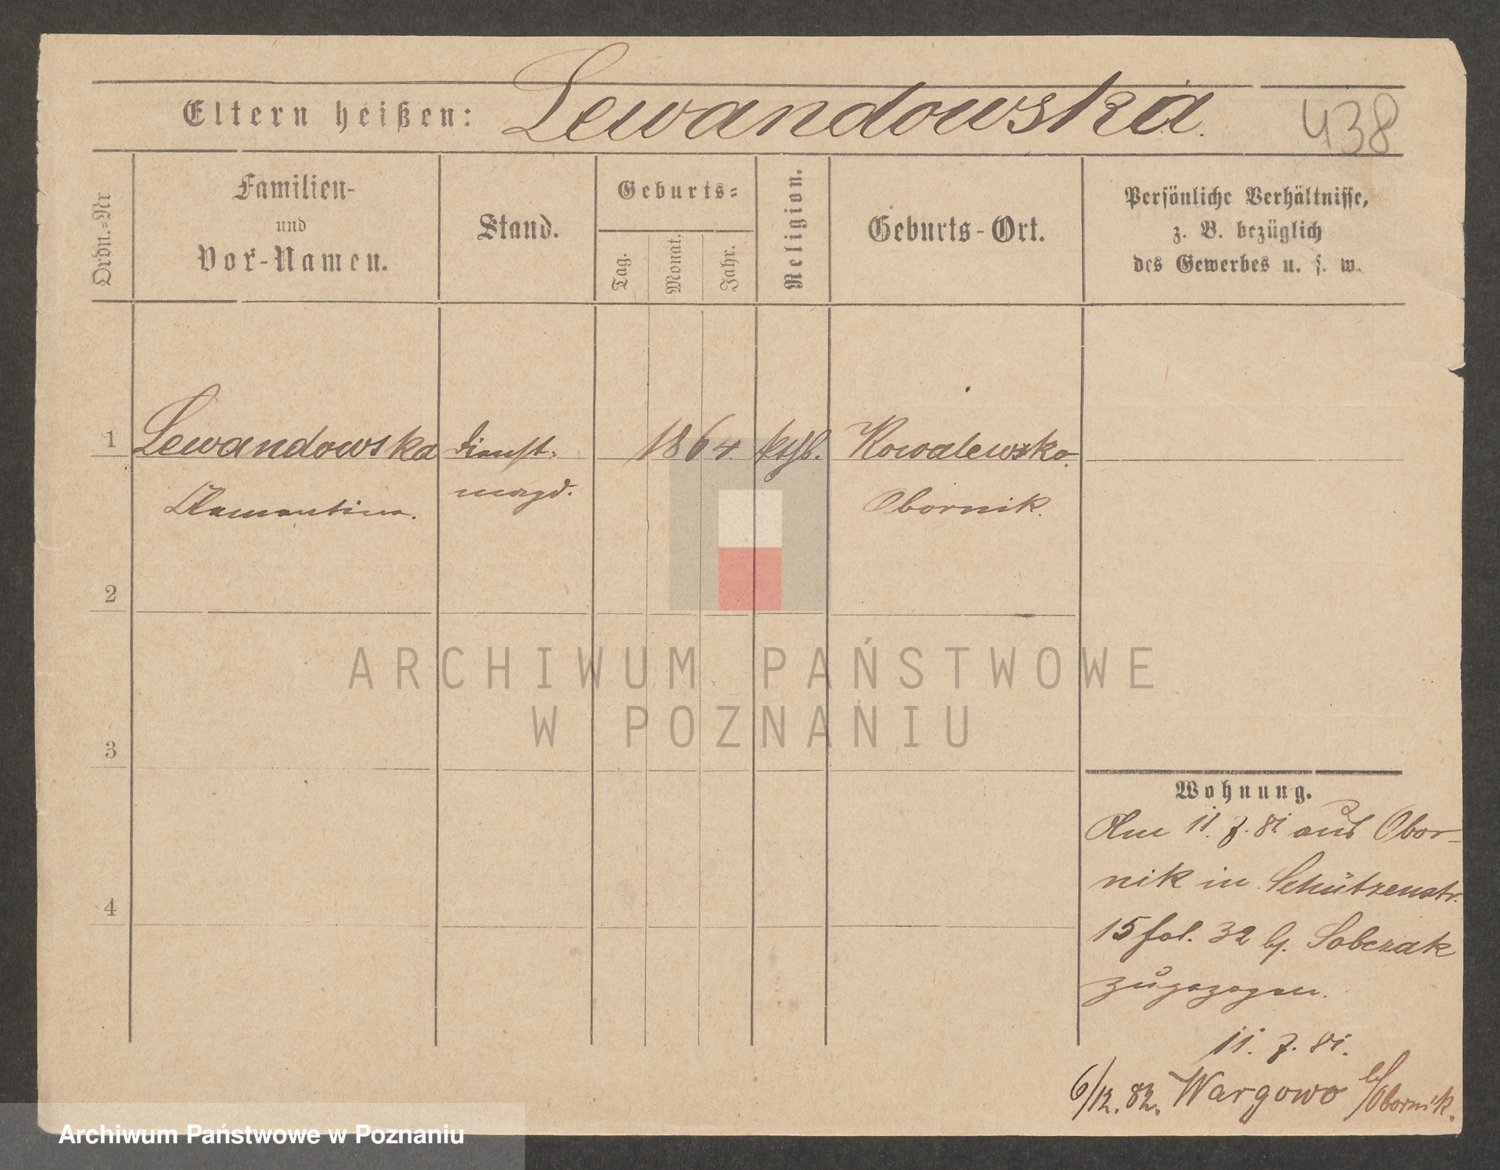 Eltern heißen: Lewandowska. 438
Ordn.-Nr
Familien-
und
Vor-Namen.
Stand.
Geburts-
Tag.
Monat.
Jahr.
Religion.
Geburts-Ort.
Persönliche Verhältnisse,
z. B. bezüglich
des Gewerbes u. s. w.
1 Lewandowska Dienst- 1864 kthl. Kowalewsko
magd. Obornik.
2
3
4
ARCHIWUM PAŃSTWOWE
W POZNANIU
Wohnung.
Am 11. 7. 81 aus Obor-
nik in Schützenstr.
15 fol. 32 b. Sobczak
zugezogen.
11. 7. 81.
6/12. 82. Wargowo b/Obornik.
Archiwum Państwowe w Poznaniu